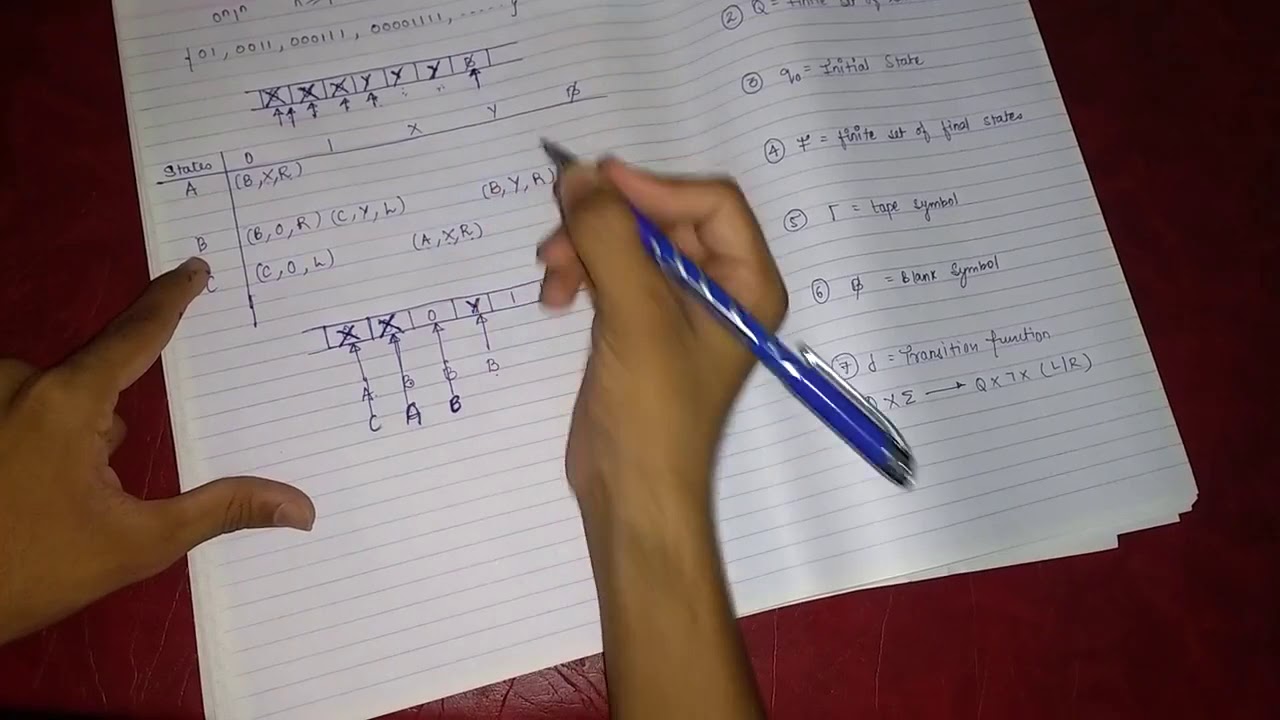 0n1n
{01, 0011, 000111, 00001111, ......}
X X X Y Y Y ƀ
States 0 1 X Y ƀ
A (B,X,R)
B (B,0,R) (C,Y,L) (B,Y,R)
C (C,0,L) (A,X,R)
X X 0 Y 1
A B B B
C A B
② Q = finite set of
③ q0 = Initial State
④ F = finite set of final states
⑤ Γ = tape symbol
⑥ ƀ = Blank symbol
⑦ d = Transition function
Q X Σ → Q X Γ X (L/R)